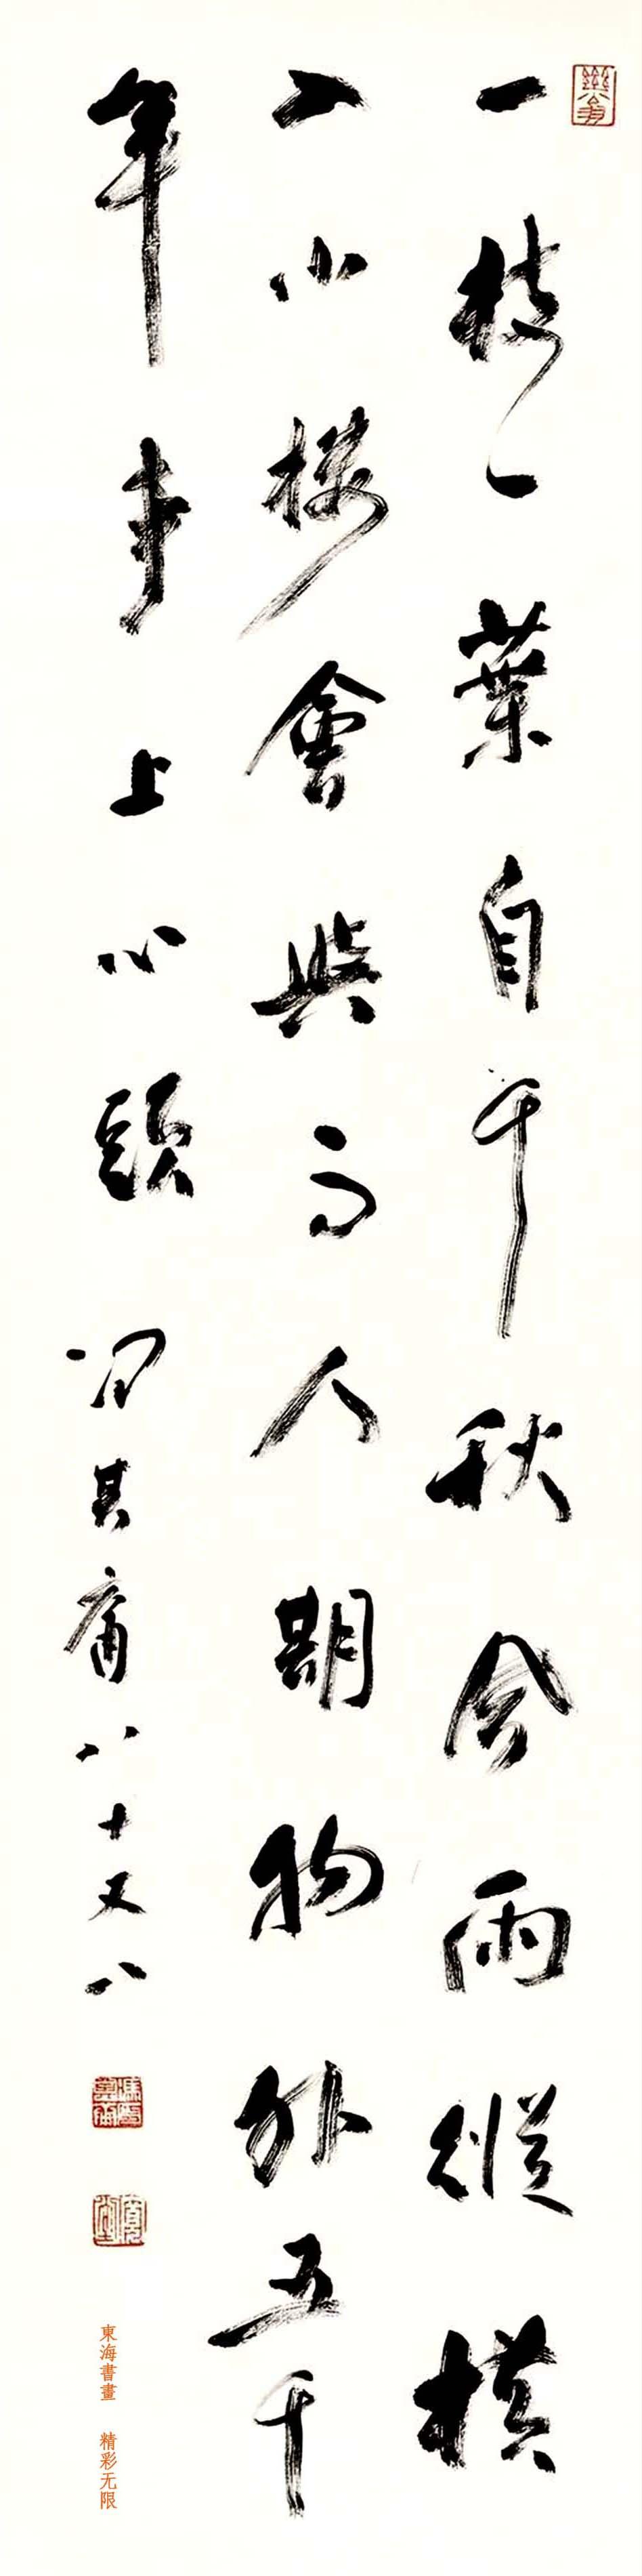 一枝一葉自千秋風雨縱橫
入小樓會與高人期物外五千
年事上心頭
馮其庸八十又八
馮印其庸
寬堂
東海書畫 精彩无限